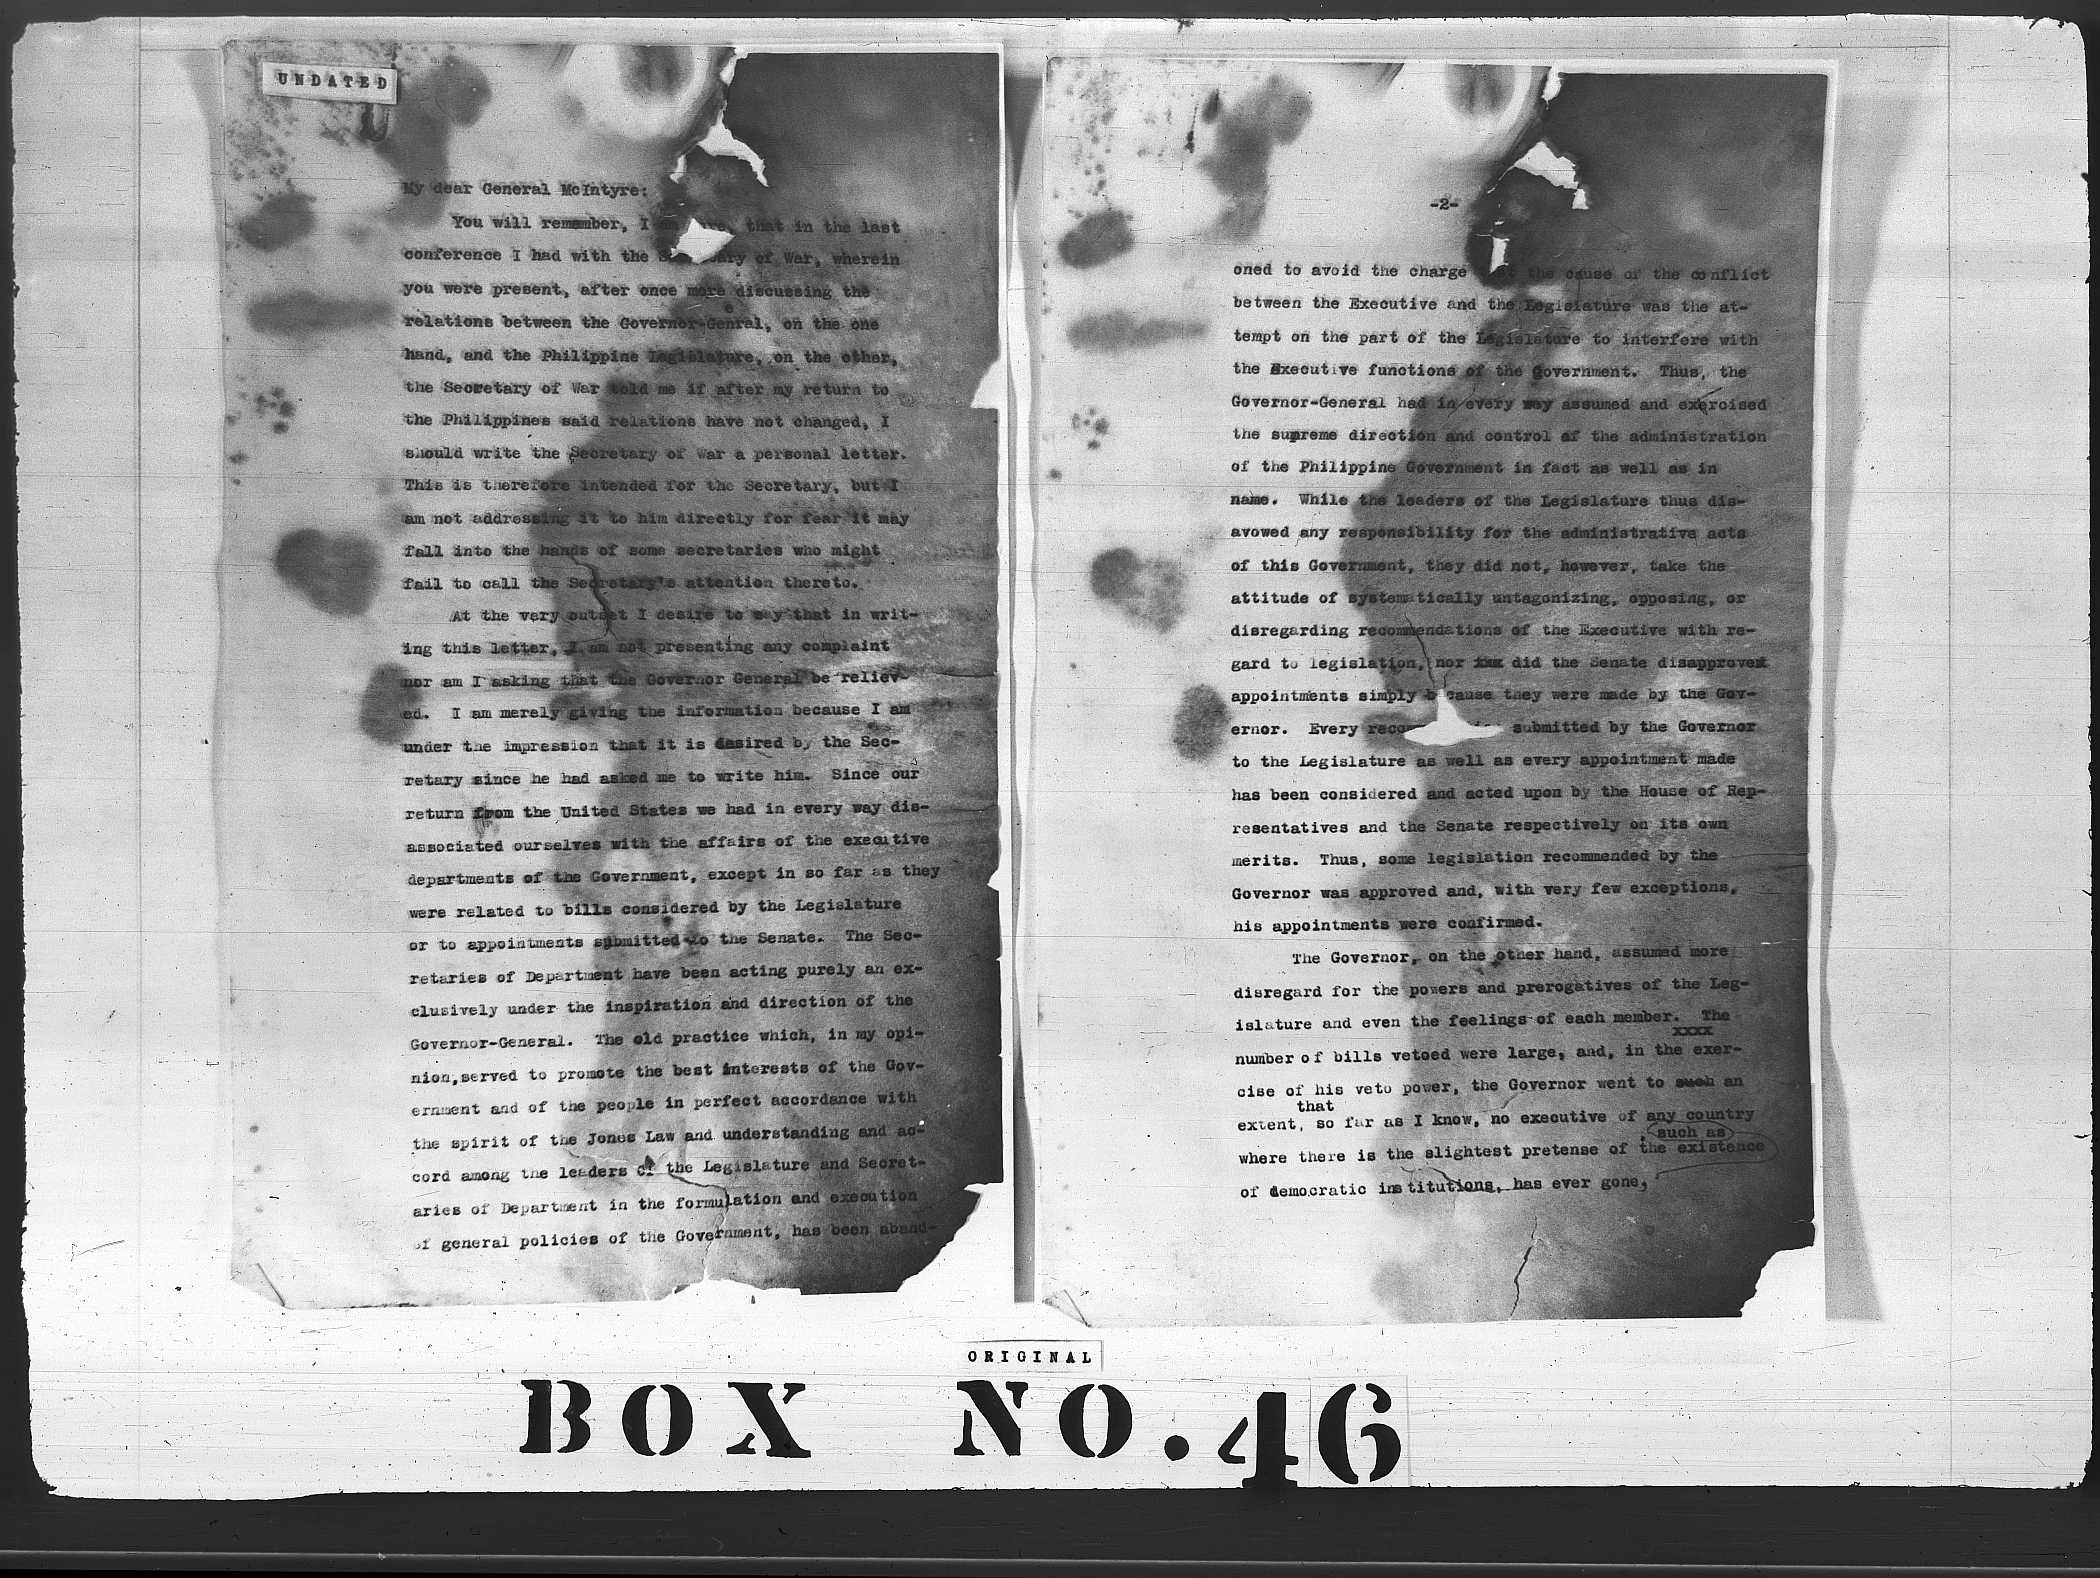 UNDATED
My dear General McIntyre:
You will remember, I that in the last
conference I had with the of War, wherein
you were present, after once more discussing the
e
relations between the Governor-Genral, on the one
hand, and the Philippine Legislature, on the other,
the Secretary of War told me if after my return to
the Philippines said relations have not changed, I
should write the Secretary of War a personal letter.
This is therefore intended for the Secretary, but I
am not addressing it to him directly for fear it may
fall into the hands of some secretaries who might
fail to call the Secretary's attention thereto.
At the very outset I desire to say that in writ-
ing this letter, I am not presenting any complaint
nor am I asking that the Governor General be reliev-
ed. I am merely giving the information because I am
under the impression that it is desired by the Sec-
retary since he had asked me to write him. Since our
return from the United States we had in every way dis-
associated ourselves with the affairs of the executive
departments of the Government, except in so far as they
were related to bills considered by the Legislature
or to appointments submitted to the Senate. The Sec-
retaries of Department have been acting purely an ex-
clusively under the inspiration and direction of the
Governor-General. The old practice which, in my opi-
nion, served to promote the best interests of the Gov-
ernment and of the people in perfect accordance with
the spirit of the Jones Law and understanding and ac-
cord among the leaders of the Legislature and Secret-
aries of Department in the formulation and execution
of general policies of the Government, has been aband-
-2-
oned to avoid the charge the cause of the conflict
between the Executive and the Legislature was the at-
tempt on the part of the Legislature to interfere with
the Executive functions of the Government. Thus, the
Governor-General had in every way assumed and exercised
the supreme direction and control of the administration
of the Philippine Government in fact as well as in
name. While the leaders of the Legislature thus dis-
avowed any responsibility for the administrative acts
of this Government, they did not, however, take the
attitude of systematically antagonizing, opposing, or
disregarding recommendations of the Executive with re-
gard to legislation, nor xxx did the Senate disapprove
appointments simply because they were made by the Gov-
ernor. Every submitted by the Governor
to the Legislature as well as every appointment made
has been considered and acted upon by the House of Rep-
resentatives and the Senate respectively on its own
merits. Thus, some legislation recommended by the
Governor was approved and, with very few exceptions,
his appointments were confirmed.
The Governor, on the other hand, assumed more
disregard for the powers and prerogatives of the Leg-
islature and even the feelings of each member. The
xxxx
number of bills vetoed were large, and, in the exer-
cise of his veto power, the Governor went to such an
that
extent, so far as I know, no executive of any country
, such as
where there is the slightest pretense of the existence
of democratic institutions, has ever gone,
ORIGINAL
BOX NO. 46